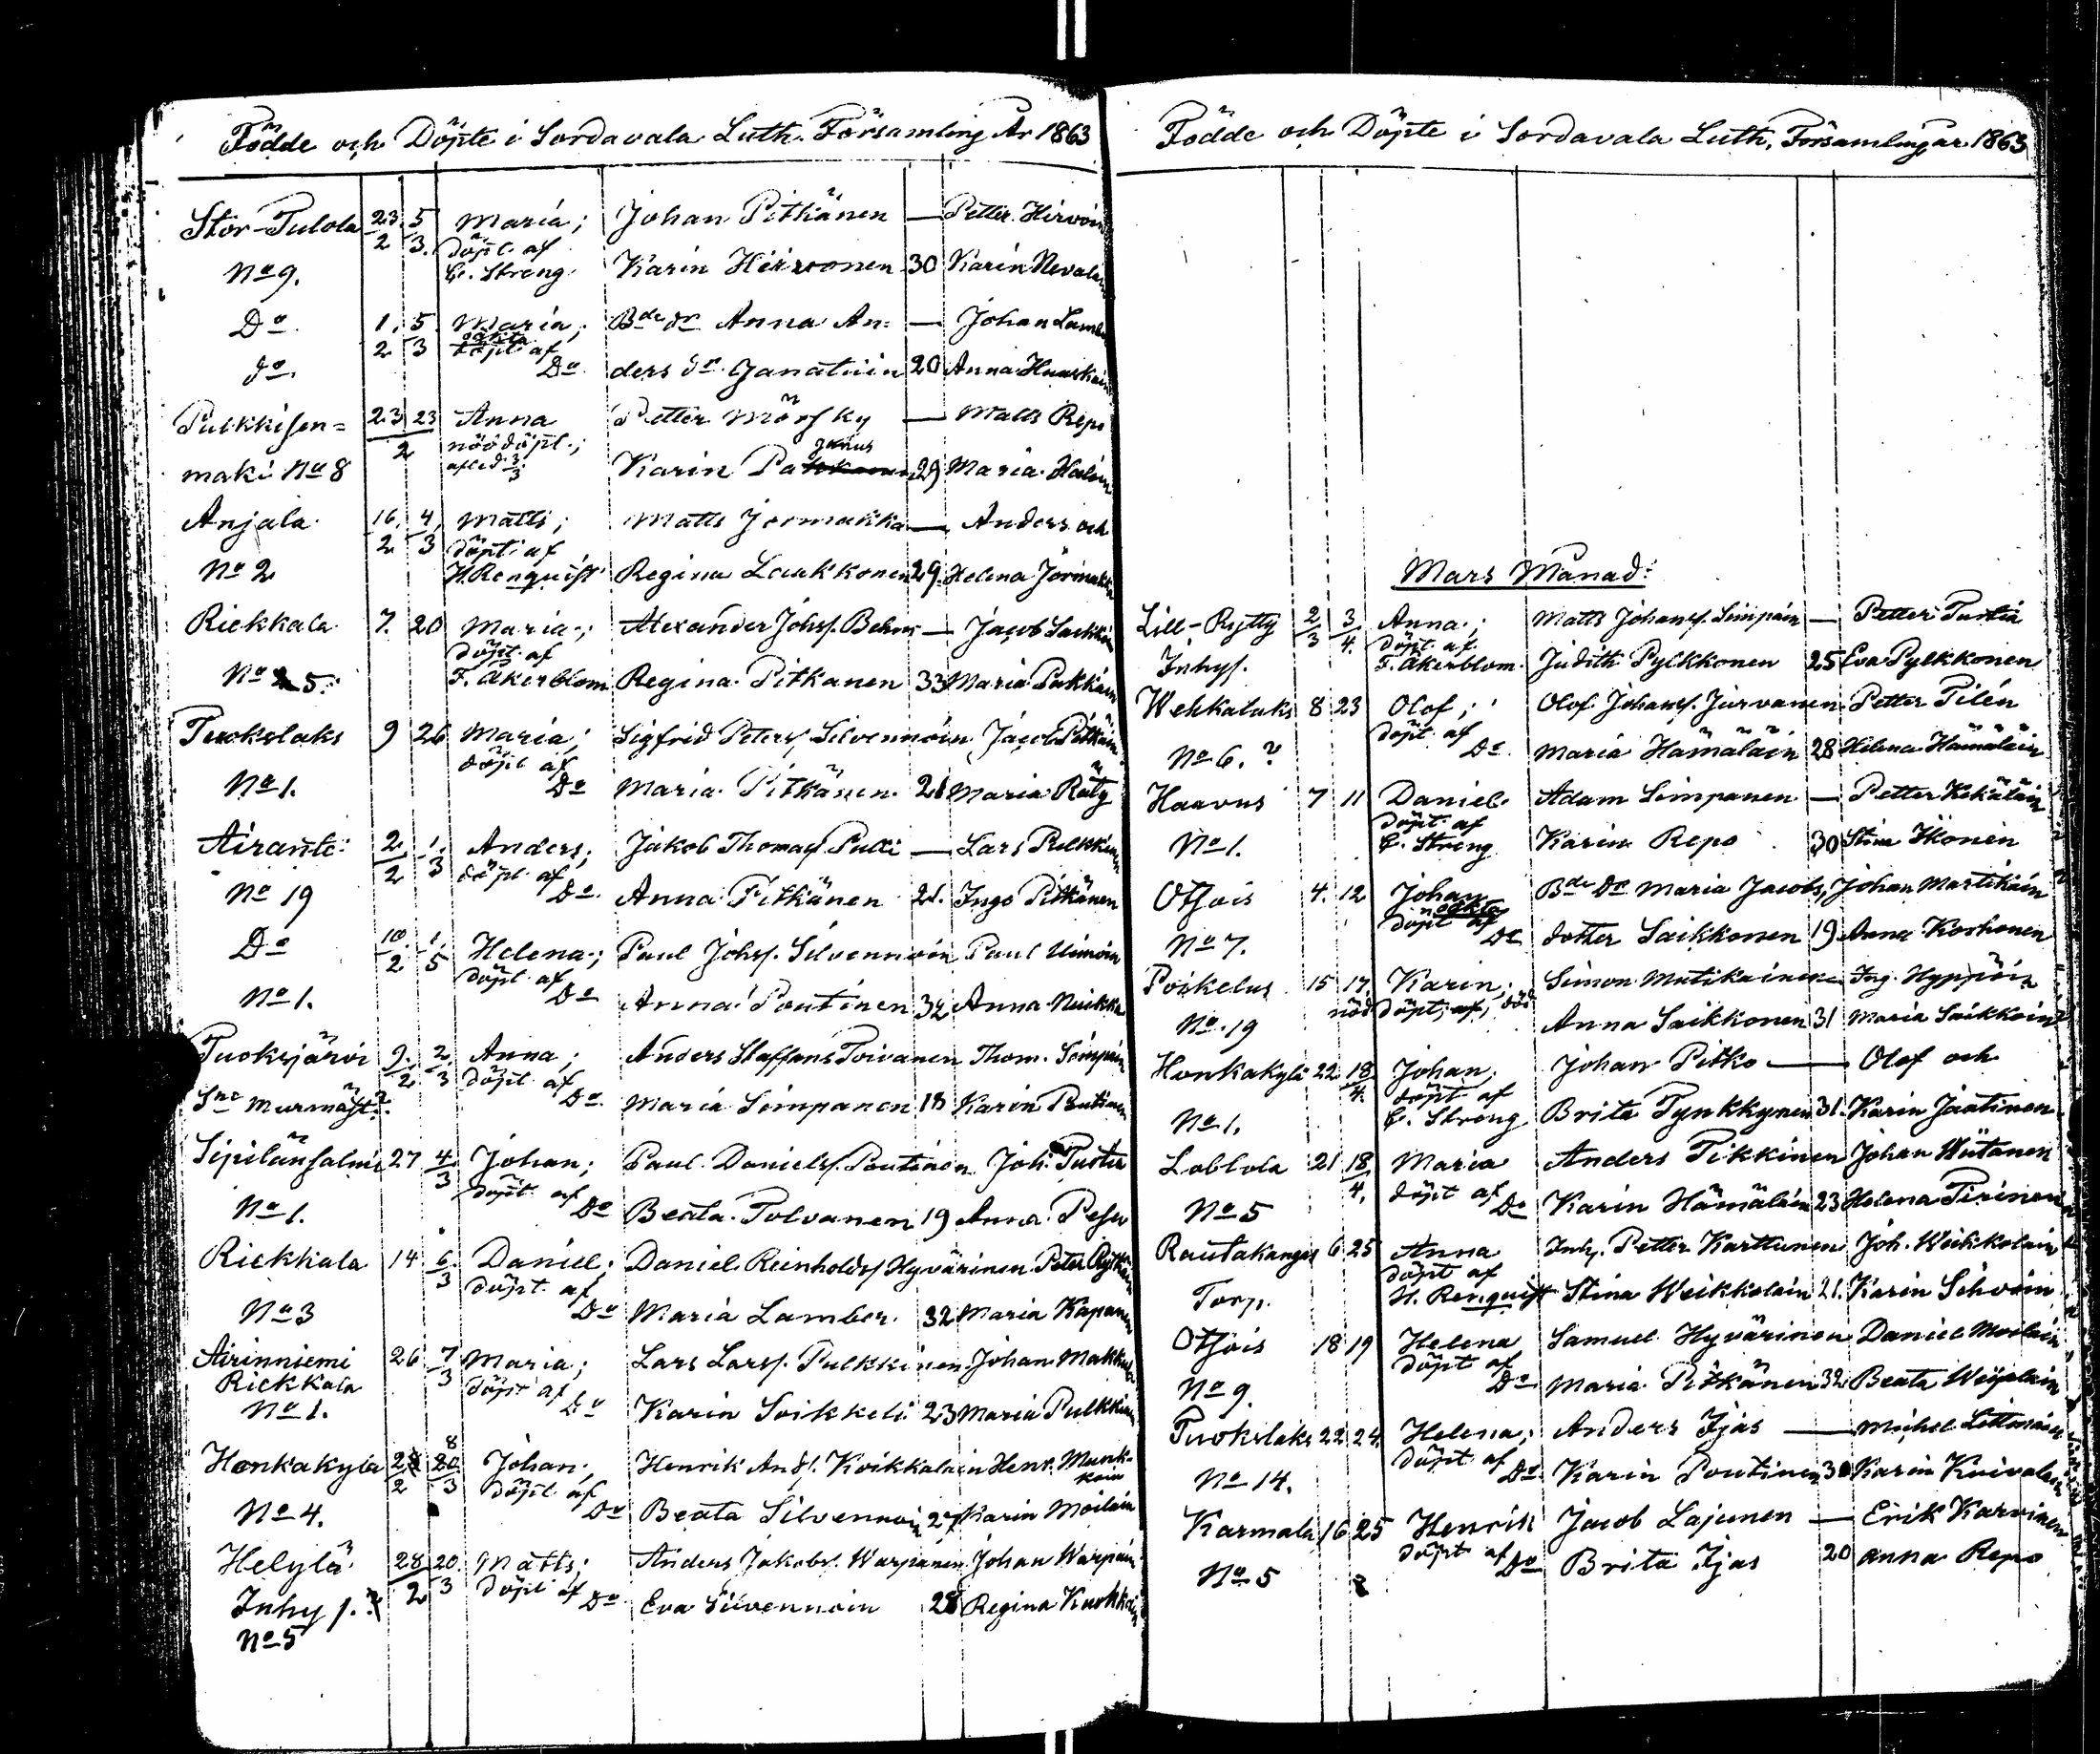 Födde och Döpte i Sordavala Luth. Församling År 1863
Stor-Pulola 23/2 5/3. Maria; Johan Pitkänen — Petter Hirvoin
döpt af
No 9. C. Streng. Karin Hirvonen 30 Karin Nevalain
Do 1/2 5/3 Maria; Bde dr Anna An= — Johan
oäkta
döpt af
do. Do ders dr 20 Anna
Pulkkisen= 23 23/2 Anna Petter Mörsky — Matts Repo
nöddöpt;
mäki No 8 3/3 Karin 29 Maria
Anjala 16/2 4/3 Matts; Matts Jormakka — Anders och
döpt af
No 2 H. Renquist Regina Laukkonen 29. Helena Jormakka
Riekkala 7. 20 Maria; Alexander Johss. — Jacob
döpt af
No 5. F. Åkerblom Regina Pitkänen 33 Maria
Tuokslaks 9 26 Maria; Sigfrid Peters. Silvennoin Jacob Pitkäin
döpt af
No 1. Do Maria Pitkänen 21 Maria Räty
Airanti 2/2 1/3 Anders; Jakob Thomass. Pulli — Lars Pulkkinen
döpt af
No 19 Do Anna Pitkänen 21. Inga Pitkänen
Do 10/2 1/5 Helena; Paul Johss. Silvennoin Paul
döpt af
No 1. Do Anna Poutinen 32 Anna
Tuoksjärvi 9/2 2/3 Anna; Anders Staffans Toivanen Thom. Simpain
döpt af
Do Maria Simpanen 18 Karin Poutinen
Sipilänsalmi 27 4/3 Johan; Paul Daniels. Poutinen Joh.
döpt af
No 1. Do Beata Tolvanen 19 Anna
Riekkala 14 6/3 Daniel; Daniel Reinholds. Hyvärinen Peter
döpt af
No 3 Do Maria Lamber 32 Maria Kapanen
Airinniemi 26 7/3 Maria; Lars Larss. Pulkkinen Johan
Riekkala döpt af
No 1. Do Karin Soikkeli 23 Maria Pulkkinen
8
Honkakylä 28/2 20/3 Johan; Henrik Ands. Koikkalain Henr. Munk-
döpt af koin
No 4. Do Beata Silvennoin 27 Karin Moilain
Helylä 28/2 20/3 Matts; Anders Jakobs. Warpanen Johan Warpain
döpt af
Inhys. Do Eva Silvennoin 28 Regina
No 5
Födde och Döpte i Sordavala Luth. Församling år 1863
Mars Månad.
Lill-Rytty 2/3 3/4. Anna; Matts Johanss. Simpain — Petter Purtia
döpt af
Inhys. F. Åkerblom. Judith Pylkkonen 25 Eva Pylkkonen
Wehkalaks 8 23 Olof; Olof Johanss. Jurvanen Petter Pilén
döpt af
No 6.? Do Maria Hämäläin 28 Helena Hämäläin
Haavus 7 11 Daniel Adam Simpanen — Petter Kekäläin
döpt af
No 1. C. Streng Karin Repo 30 Stina Ikonen
Otsois 4. 12 Johan Bde Dr Maria Jacobs, Johan Martikain
oäkta
döpt af
No 7. Do dotter Saikkonen 19 Anna Korhonen
Poikelus 15 17 Karin; Simon Mutikainen — Ing.
nöd döpt; af, död
No 19 Anna Saikkonen 31 Maria Saikkoin
Honkakylä 22 18/4. Johan; Johan Pitko — Olof och
döpt af
No 1. C. Streng Brita Tynkkynen 31. Karin Jaatinen
21 18/4. Maria Anders Pikkinen Johan Wiitanen
döpt af
No 5 Do Karin Hämäläin 23 Helena Pirinen
Rautakangas 6 25 Anna Inhy. Petter Karttunen Joh. Weikkolain
döpt af
Torp. H. Renquist Stina Weikkolain 21. Karin Sihvoin
Otsois 18 19 Helena Samuel Hyvärinen Daniel
döpt af
No 9. Do Maria Pitkänen 32 Beata
Tuokslaks 22 24 Helena; Anders Ijas — Michel
döpt af
No 14. Do Karin Poutinen 30 Karin Kuivalain
Karmala 16 25 Henrik Jacob Lajunen — Erik Karvinen
döpt af
No 5 Do Brita Ijas 20 Anna Repo